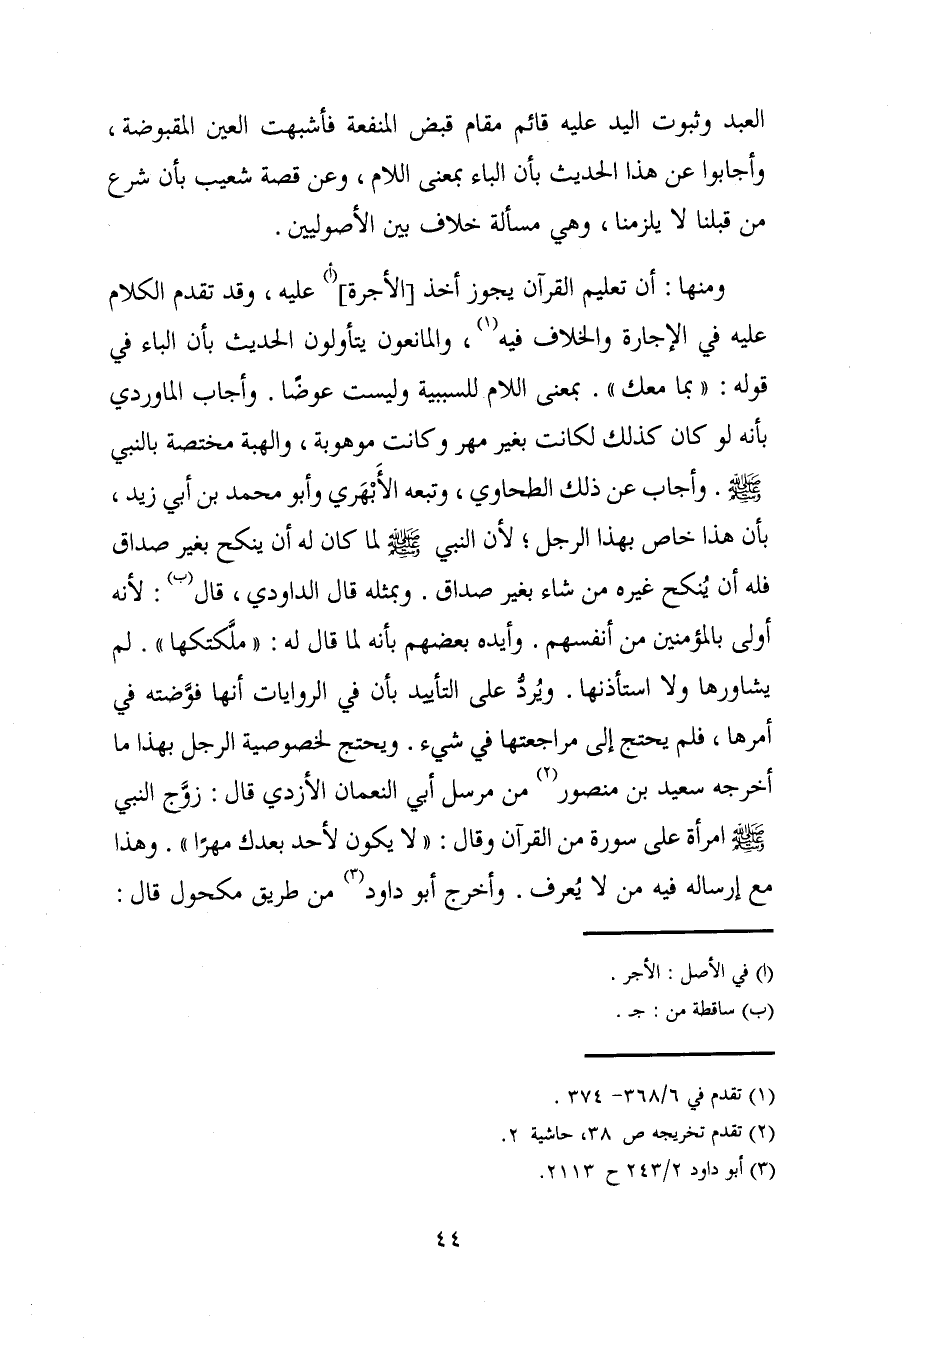 العبد وثبوت اليد عليه قائم مقام قبض المنفعة فأشبهت العين المقبوضة ،
وأجابوا عن هذا الحديث بأن الباء بمعنى اللام ، وعن قصة شعيب بأن شرع
من قبلنا لا يلزمنا ، وهي مسألة خلاف بين الأصوليين .
ومنها : أن تعليم القرآن يجوز أخذ [الأجرة](أ) عليه ، وقد تقدم الكلام
عليه في الإجارة والخلاف فيه(١) ، والمانعون يتأولون الحديث بأن الباء في
قوله : « بما معك » . بمعنى اللام للسببية وليست عوضًا . وأجاب الماوردي
بأنه لو كان كذلك لكانت بغير مهر وكانت موهوبة ، والهبة مختصة بالنبي
ﷺ . وأجاب عن ذلك الطحاوي ، وتبعه الأَبْهَري وأبو محمد بن أبي زيد ،
بأن هذا خاص بهذا الرجل ؛ لأن النبي ﷺ لما كان له أن ينكح بغير صداق
فله أن يُنكح غيره من شاء بغير صداق . وبمثله قال الداودي ، قال(ب) : لأنه
أولى بالمؤمنين من أنفسهم . وأيده بعضهم بأنه لما قال له : « ملَّكتكها » . لم
يشاورها ولا استأذنها . ويُردُّ على التأييد بأن في الروايات أنها فوَّضته في
أمرها ، فلم يحتج إلى مراجعتها في شيء . ويحتج لخصوصية الرجل بهذا ما
أخرجه سعيد بن منصور(٢) من مرسل أبي النعمان الأزدي قال : زوَّج النبي
ﷺ امرأة على سورة من القرآن وقال : « لا يكون لأحد بعدك مهرًا » . وهذا
مع إرساله فيه من لا يُعرف . وأخرج أبو داود(٣) من طريق مكحول قال :
(أ) في الأصل : الأجر .
(ب) ساقطة من : جـ .
(١) تقدم في ٣٦٨/٦- ٣٧٤ .
(٢) تقدم تخريجه ص ٣٨، حاشية ٢.
(٣) أبو داود ٢٤٣/٢ ح ٢١١٣.
٤٤